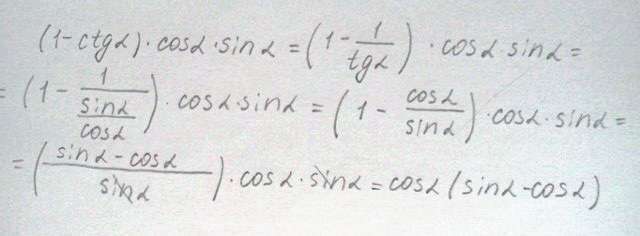 (1-ctgα)·cosα·sinα = (1 - 1/tgα) · cosα sinα =
= (1 - 1/(sinα/cosα)) · cosα·sinα = (1 - cosα/sinα) · cosα·sinα =
= ((sinα - cosα)/sinα) · cosα·sinα = cosα(sinα-cosα)